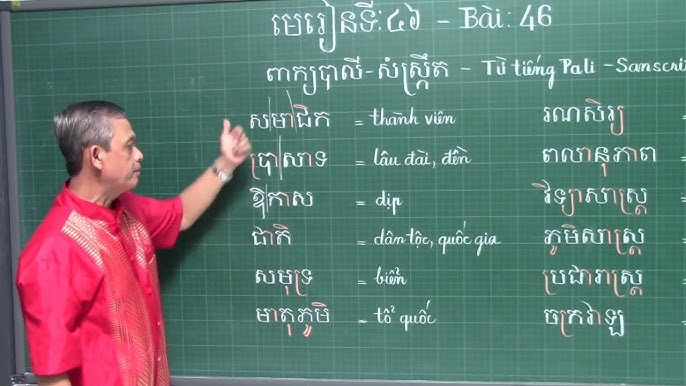 មេរៀនទី: ៤៦ - Bài: 46
ពាក្យបាលី - សំស្ក្រឹត - Từ tiếng Pali - Sanscri
ស|មា|ជិក = thành viên រណសិរ្ស =
ប្រា|សាទ = lâu đài, đền ពលានុភាព =
ឱ|កាស = dịp វិទ្យាសាស្ត្រ =
ជាតិ = dân tộc, quốc gia ភូមិសាស្ត្រ =
សមុទ្រ = biển ប្រជារាស្ត្រ =
មាតុភូមិ = tổ quốc ចក្រវាឡ =